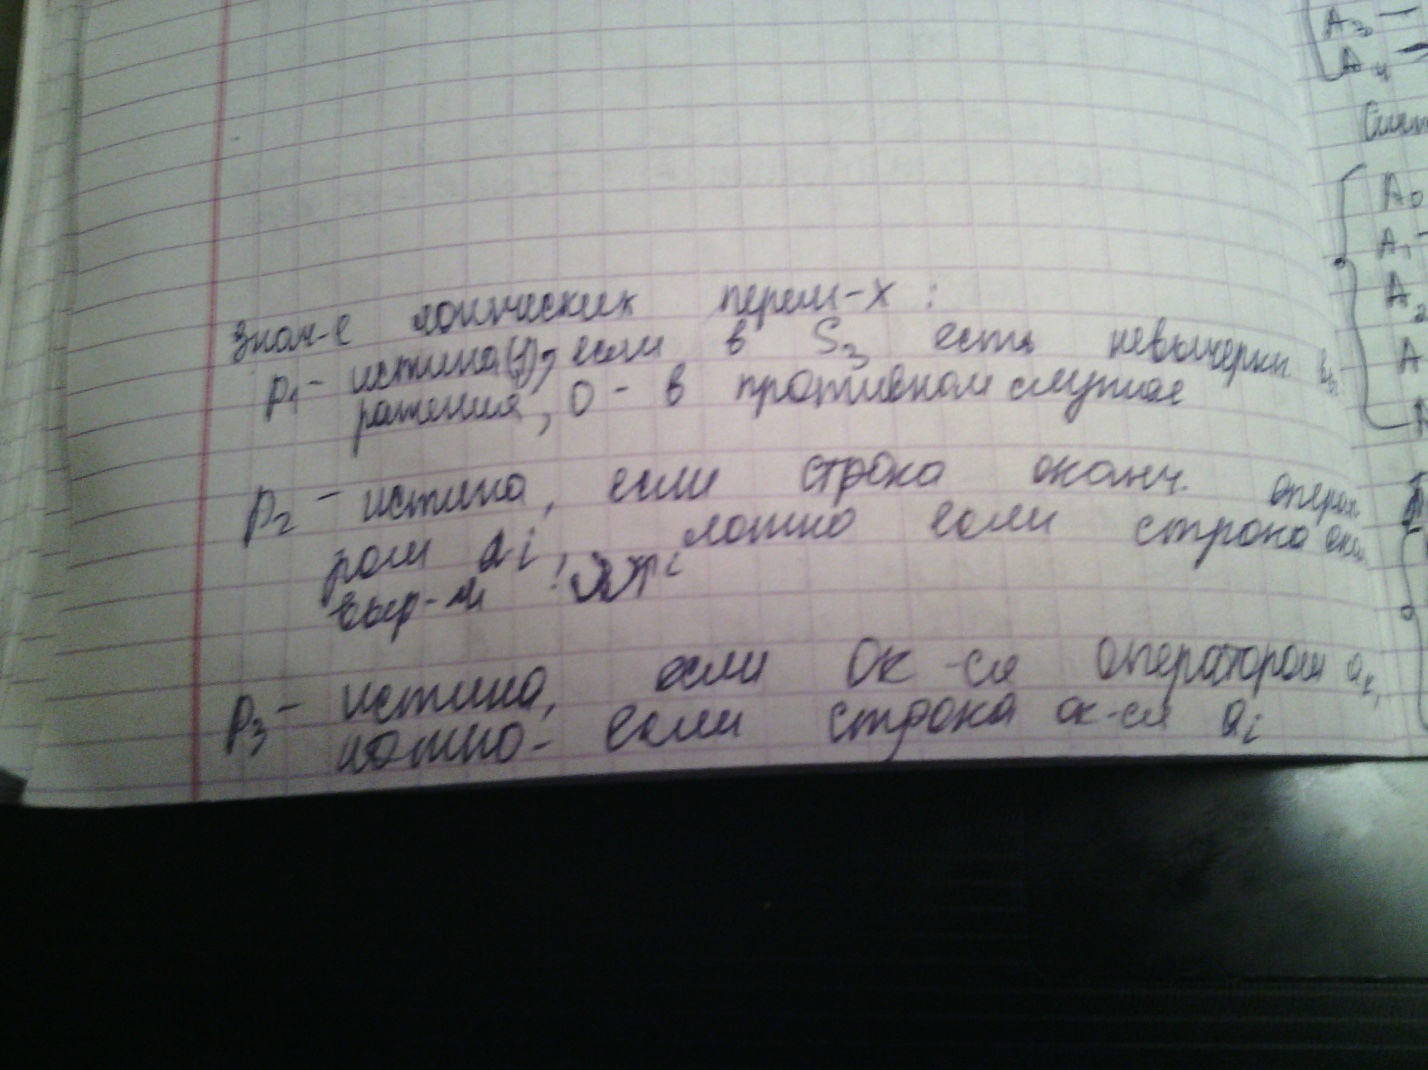 знач-е логических перем-х :
p₁ - истина(1), если в S₃ есть невычеркн вы
ражения, 0 - в противном случае
p₂ - истина, если строка оканч. операт
ром aᵢ, ложно если строка окан.
выр-м
p₃ - истина, если ок-ся оператором aₖ,
ложно - если строка ок-ся aᵢ
A₃ -
A₄
A₀
A₁ -
A₂
A